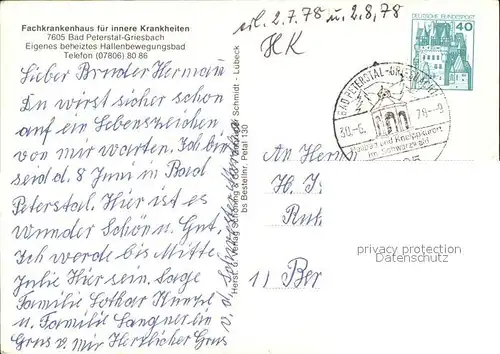 Fachkrankenhaus für innere Krankheiten
7605 Bad Peterstal-Griesbach
Eigenes beheiztes Hallenbewegungsbad
Telefon (07806) 80 86
Lieber Bruder Hermann
Du wirst sicher schon
auf ein Lebenszeichen
von mir warten. Ich bin
seid d. 8 Juni in Bad
Peterstal. Hier ist es
wunder Schön u. Gut,
Ich werde bis Mitte
Julie Hier sein. Sage
Familie Lothar
u. Familie Langner ein
Grus v. mir Herzlicher Grus
v. d.
Schöning & Co Schmidt · Lübeck
bs Bestellnr. Petal 130
2.7.78 u. 2.8.78
HK
DEUTSCHE BUNDESPOST
40
BAD PETERSTAL-GRIESBACH
30.-6. 78-9
Heilbad und Kneippkurort
im Schwarzwald
An Herrn
H. J.
1) Ber
privacy protection
Datenschutz